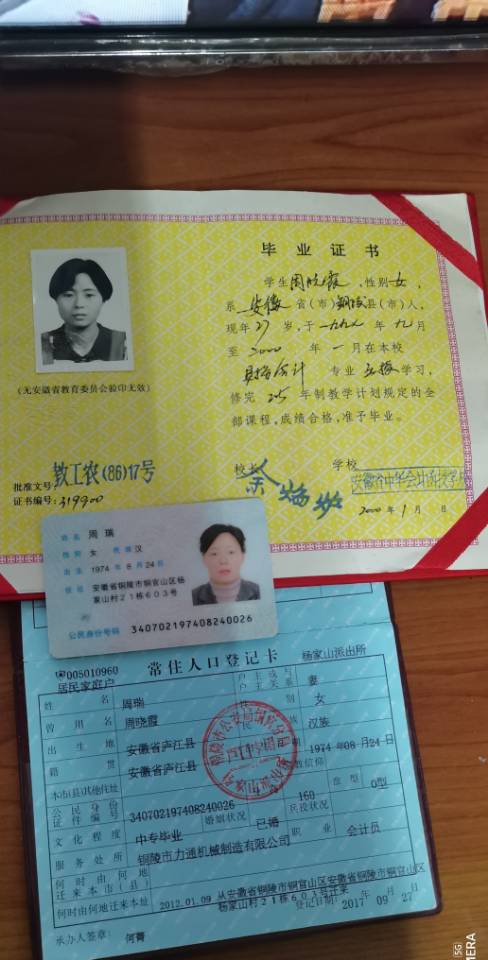 毕业证书
学生周晓霞,性别女,
系安徽省(市)铜陵县(市)人,
现年27岁,于一九九八年九月
至2000年一月在本校
财务会计专业
学习,
修完2.5年制教学计划规定的全
部课程,成绩合格,准予毕业。
校长
学校
2000年1月 日
(无安徽省教育委员会验印无效)
批准文号:教工农(86)17号
证书编号:319900
姓名 周瑞
性别 女 民族 汉
出生 1974年8月24日
住址 安徽省铜陵市铜官山区杨
家山村21栋603号
公民身份号码 340702197408240026
005010960 常住人口登记卡 杨家山派出所
居民家庭户
户主或与
户主关系 妻
姓名 周瑞 性别 女
曾用名 周晓霞 民族 汉族
出生地 安徽省庐江县 1974年08月24日
籍贯 安徽省庐江县 宗教信仰
本市(县)其他住址
公民身份
证件编号 340702197408240026 身高 160 血型 O型
文化程度 中专毕业 婚姻状况 已婚 兵役状况
服务处所 铜陵市力通机械制造有限公司 职业 会计员
何时由何地
迁来本市(县)
何时由何地迁来本址 2012.01.09 从安徽省铜陵市铜官山区安徽省铜陵市铜官山区
杨家山村21栋601号迁来
承办人签章: 何菁 登记日期 2017年09月27日
5G
MERA